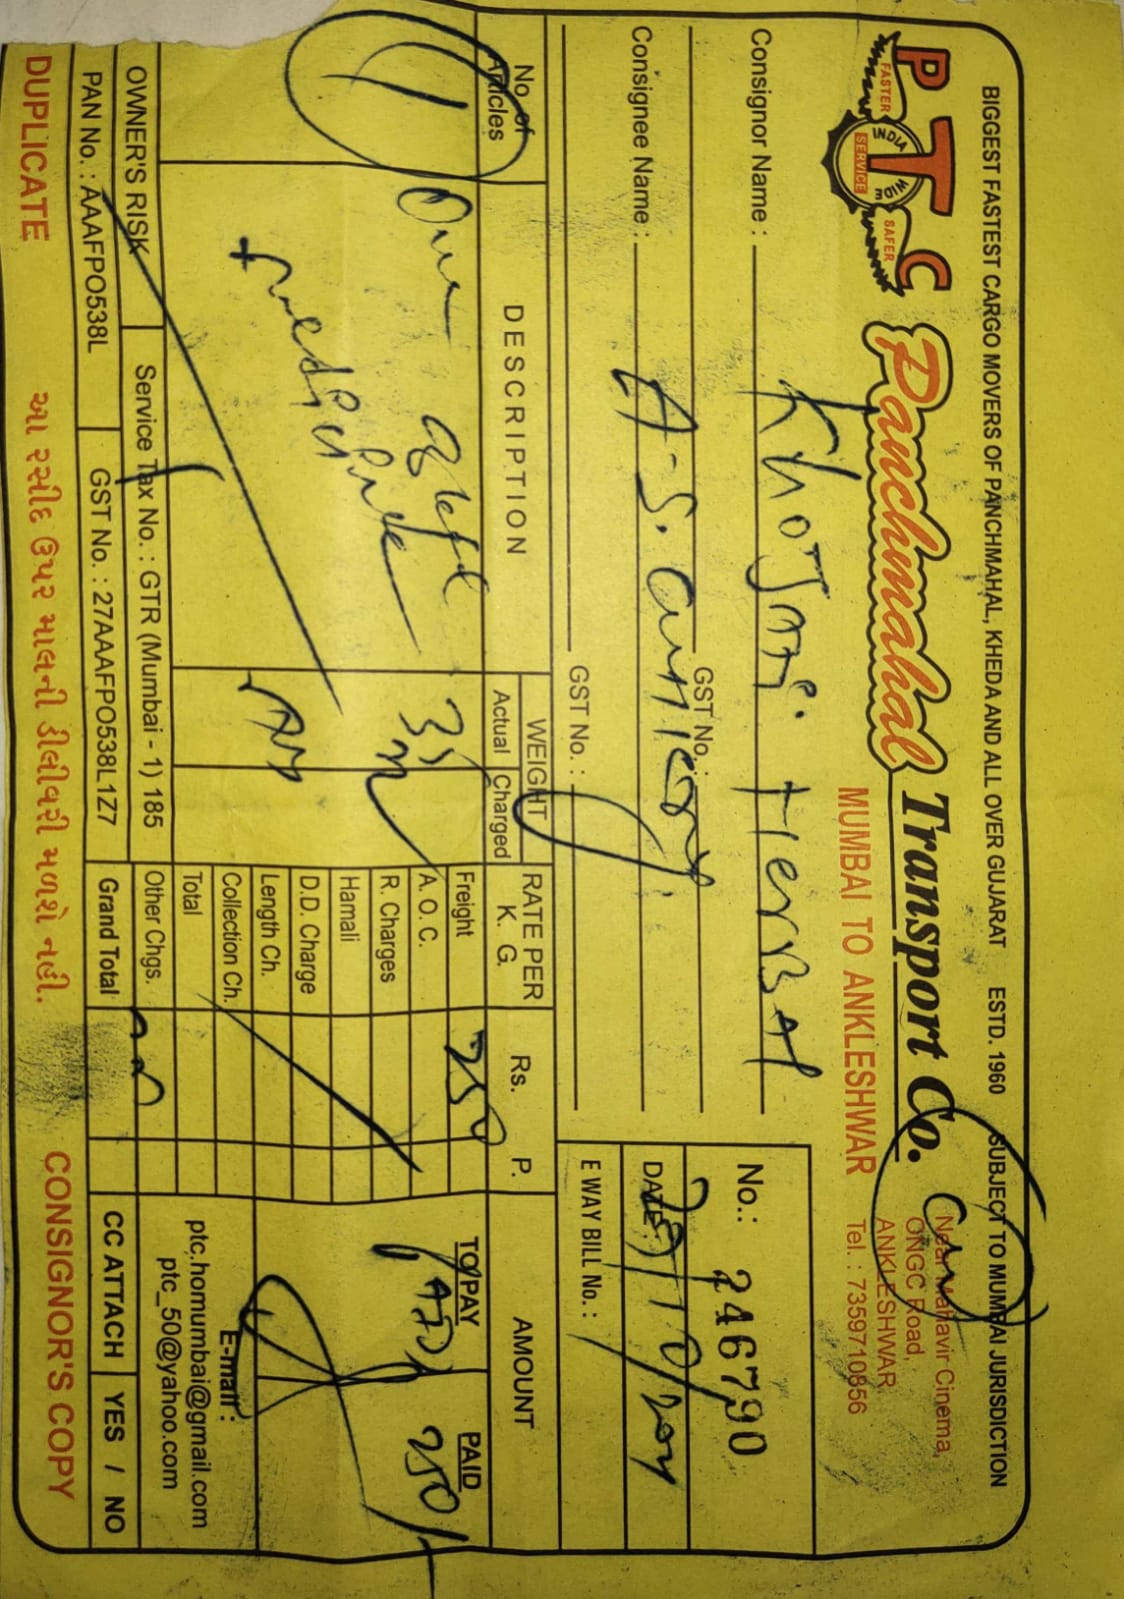 BIGGEST FASTEST CARGO MOVERS OF PANCHMAHAL, KHEDA AND ALL OVER GUJARAT ESTD. 1960 SUBJECT TO MUMBAI JURISDICTION
PTC
FASTER SAFER
INDIA WIDE
SERVICE
Panchmahal Transport Co.
MUMBAI TO ANKLESHWAR
Near Mahavir Cinema,
ONGC Road,
ANKLESHWAR
Tel. : 7359710856
Consignor Name : Khojati Herbal
GST No. :
Consignee Name : A-S.
GST No. :
No.: 246790
DATE :
E WAY BILL No. :
No. of Articles
DESCRIPTION
WEIGHT
Actual Charged
RATE PER K. G.
Rs. P.
AMOUNT
One
35
Freight 250
TO PAY PAID
250/-
A. O. C.
R. Charges
Hamali
D.D. Charge
Length Ch.
Collection Ch.
Total
Other Chgs.
Grand Total
E-mail :
ptc.homumbai@gmail.com
ptc_50@yahoo.com
OWNER'S RISK Service Tax No. : GTR (Mumbai - 1) 185
PAN No. : AAAFPO538L GST No. : 27AAAFPO538L1Z7
CC ATTACH YES / NO
DUPLICATE આ રસીદ ઉપર માલની ડીલીવરી મળશે નહી. CONSIGNOR'S COPY